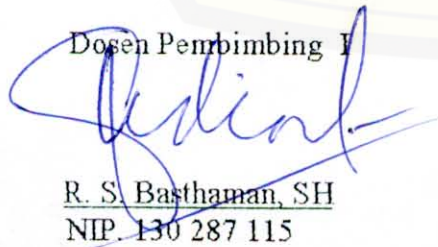 Dosen Pembimbing I
R. S. Basthaman, SH
NIP. 130 287 115